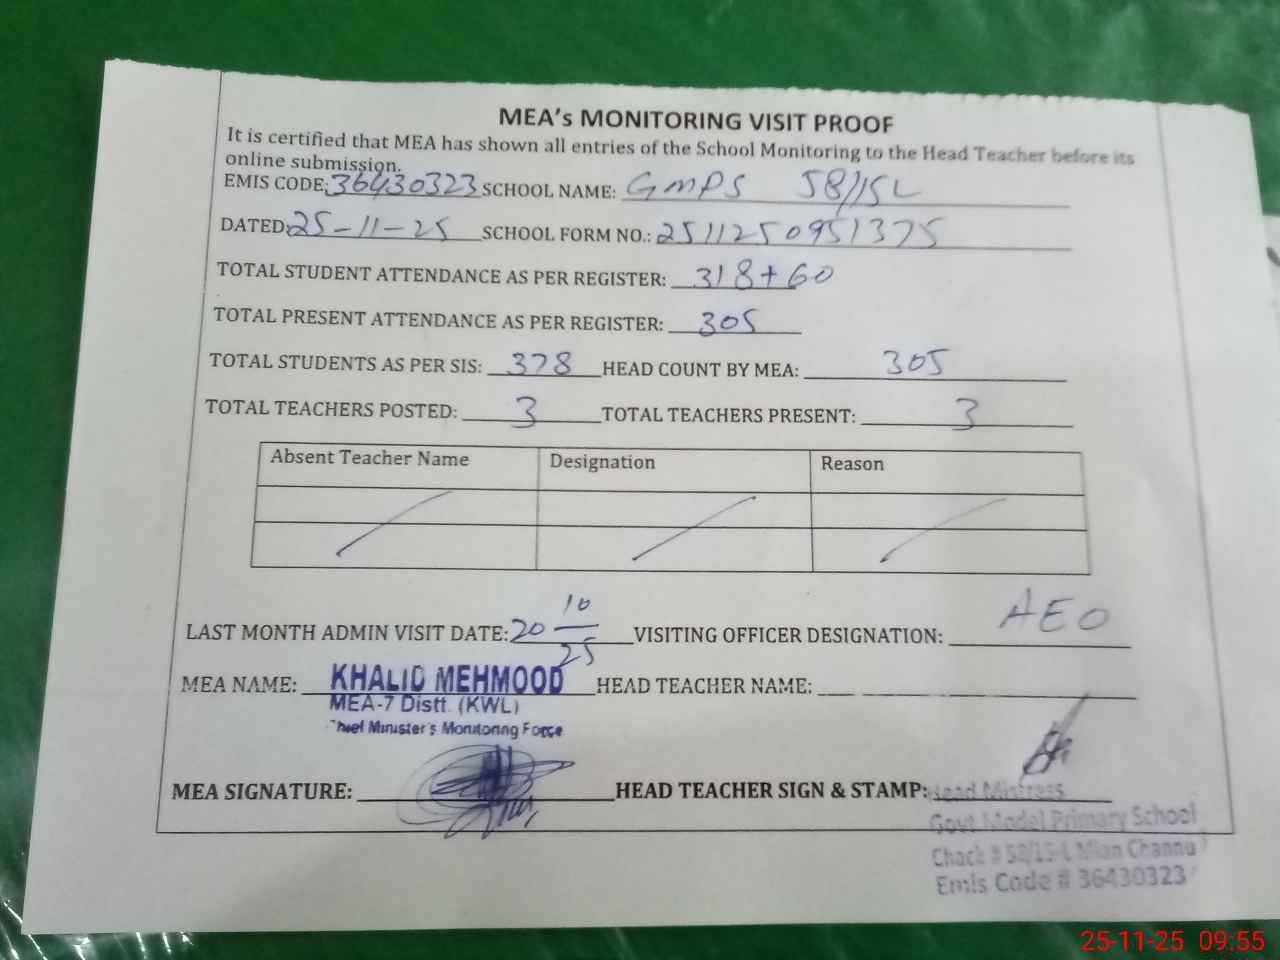 MEA's MONITORING VISIT PROOF
It is certified that MEA has shown all entries of the School Monitoring to the Head Teacher before its
online submission.
EMIS CODE: 36430323 SCHOOL NAME: GMPS 58/15L
DATED: 25-11-25 SCHOOL FORM NO.: 2511250951375
TOTAL STUDENT ATTENDANCE AS PER REGISTER: 318+60
TOTAL PRESENT ATTENDANCE AS PER REGISTER: 305
TOTAL STUDENTS AS PER SIS: 378 HEAD COUNT BY MEA: 305
TOTAL TEACHERS POSTED: 3 TOTAL TEACHERS PRESENT: 3
Absent Teacher Name Designation Reason
LAST MONTH ADMIN VISIT DATE: 20 10/25 VISITING OFFICER DESIGNATION: AEO
MEA NAME: KHALID MEHMOOD HEAD TEACHER NAME:
MEA-7 Distt. (KWL)
Chief Minister's Monitoring Force
MEA SIGNATURE: HEAD TEACHER SIGN & STAMP:
Head Mistress
Govt Model Primary School
Chack # 58/15-L Mian Channu
Emis Code # 36430323
25-11-25 09:55